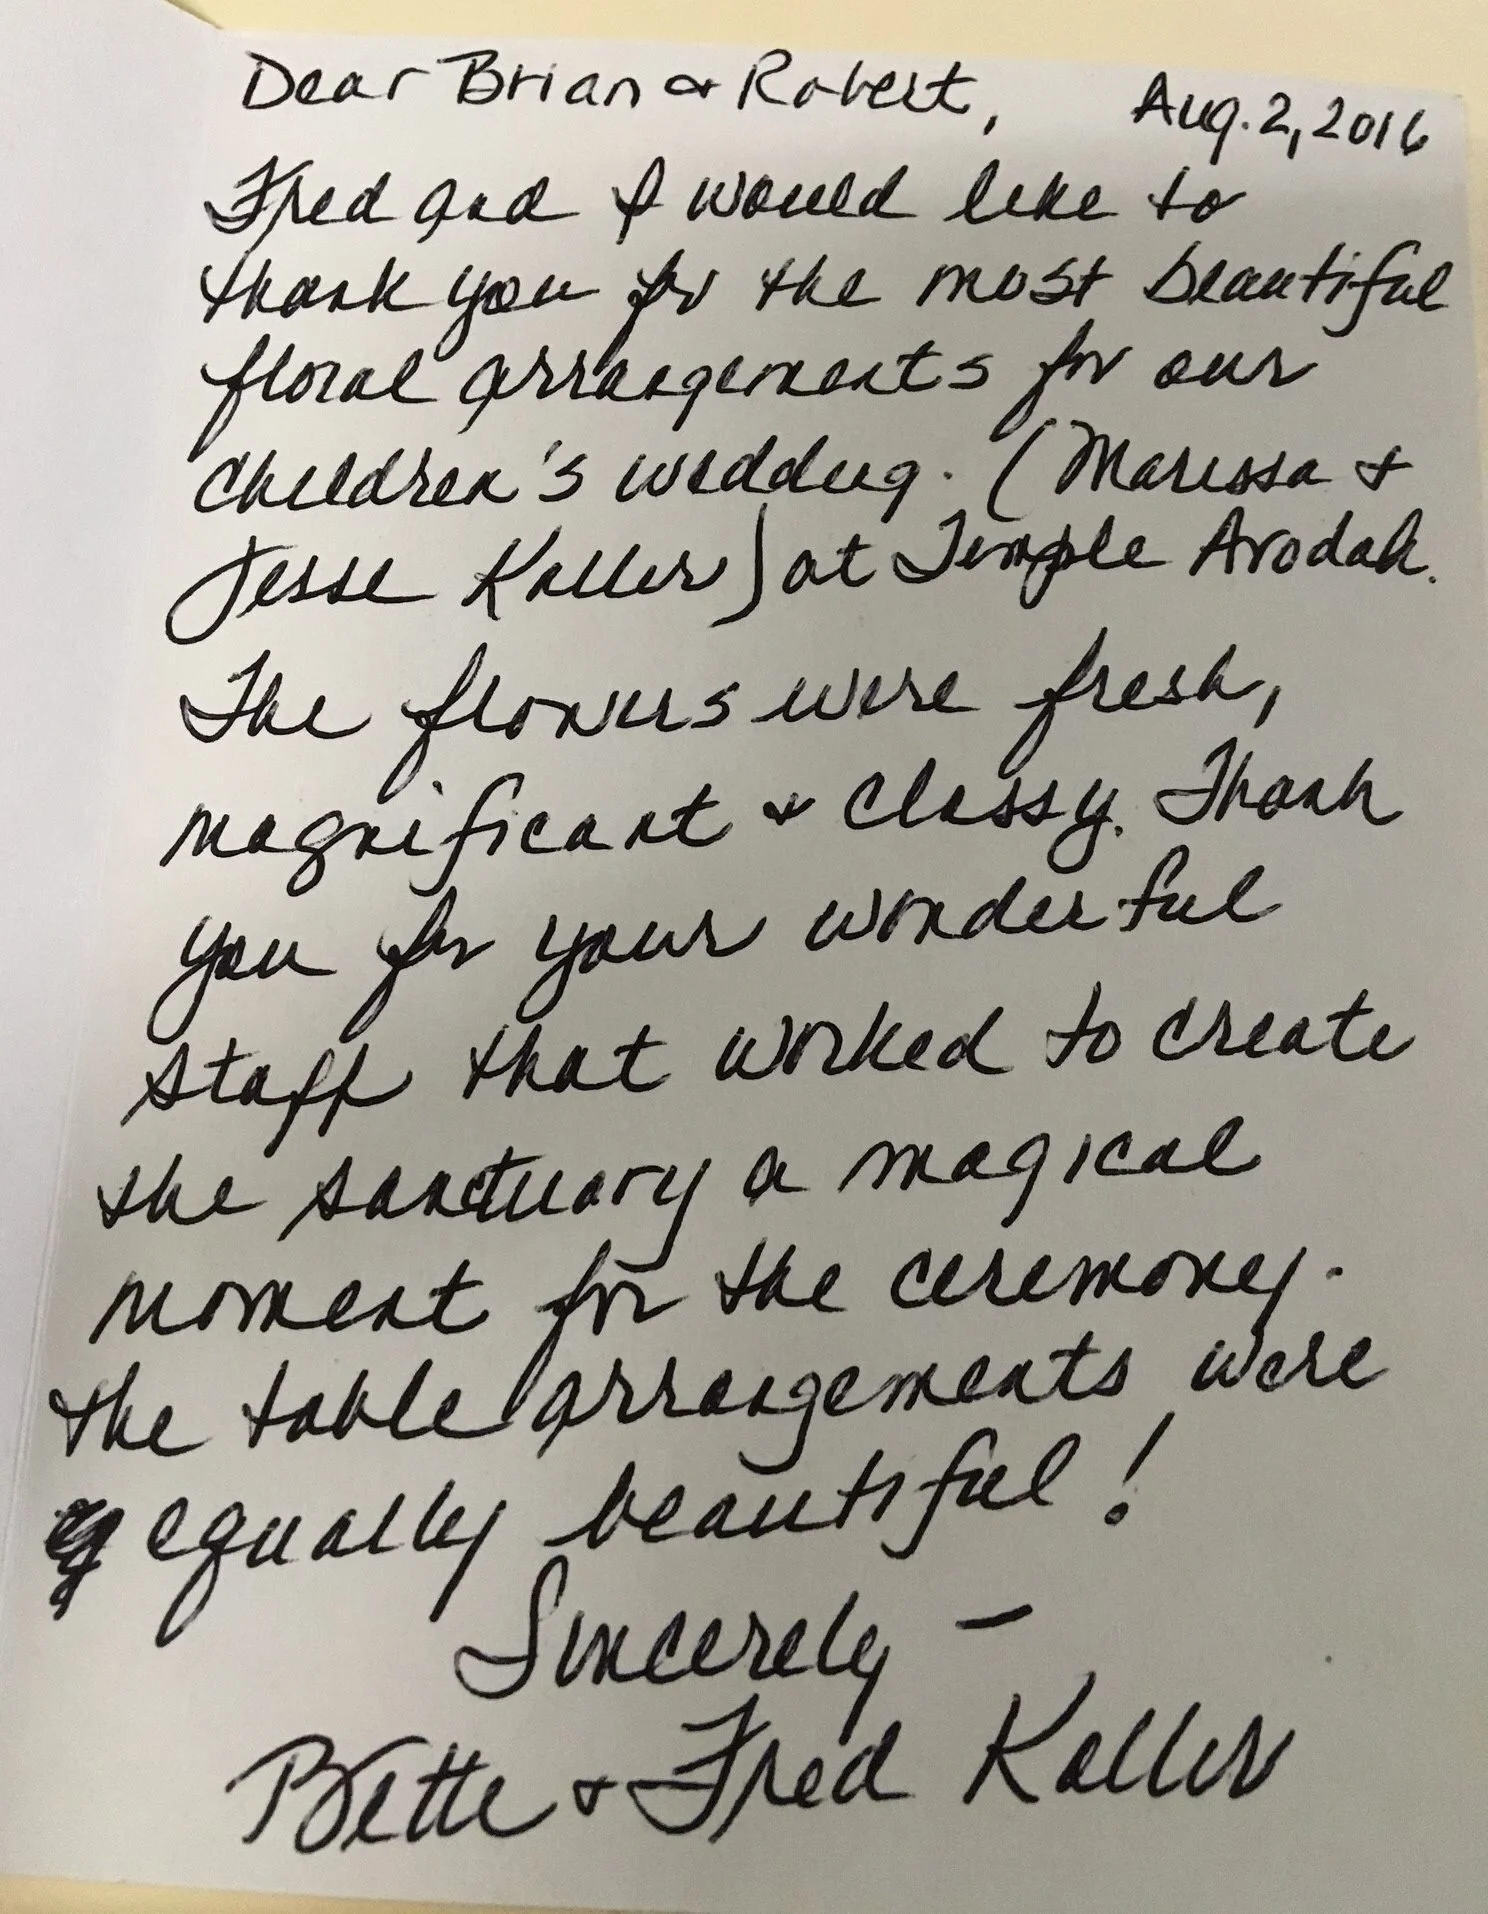 Dear Brian & Robert,
Aug. 2, 2016
Fred and I would like to
thank you for the most beautiful
floral arrangements for our
children's wedding. (Marissa &
Jesse Koller) at Temple Arodah.
The flowers were fresh,
magnificant & classy. Thank
you for your wonderful
staff that worked to create
the sanctuary a magical
moment for the ceremony.
the table arrangements were
equally beautiful!
Sincerely –
Bette & Fred Koller